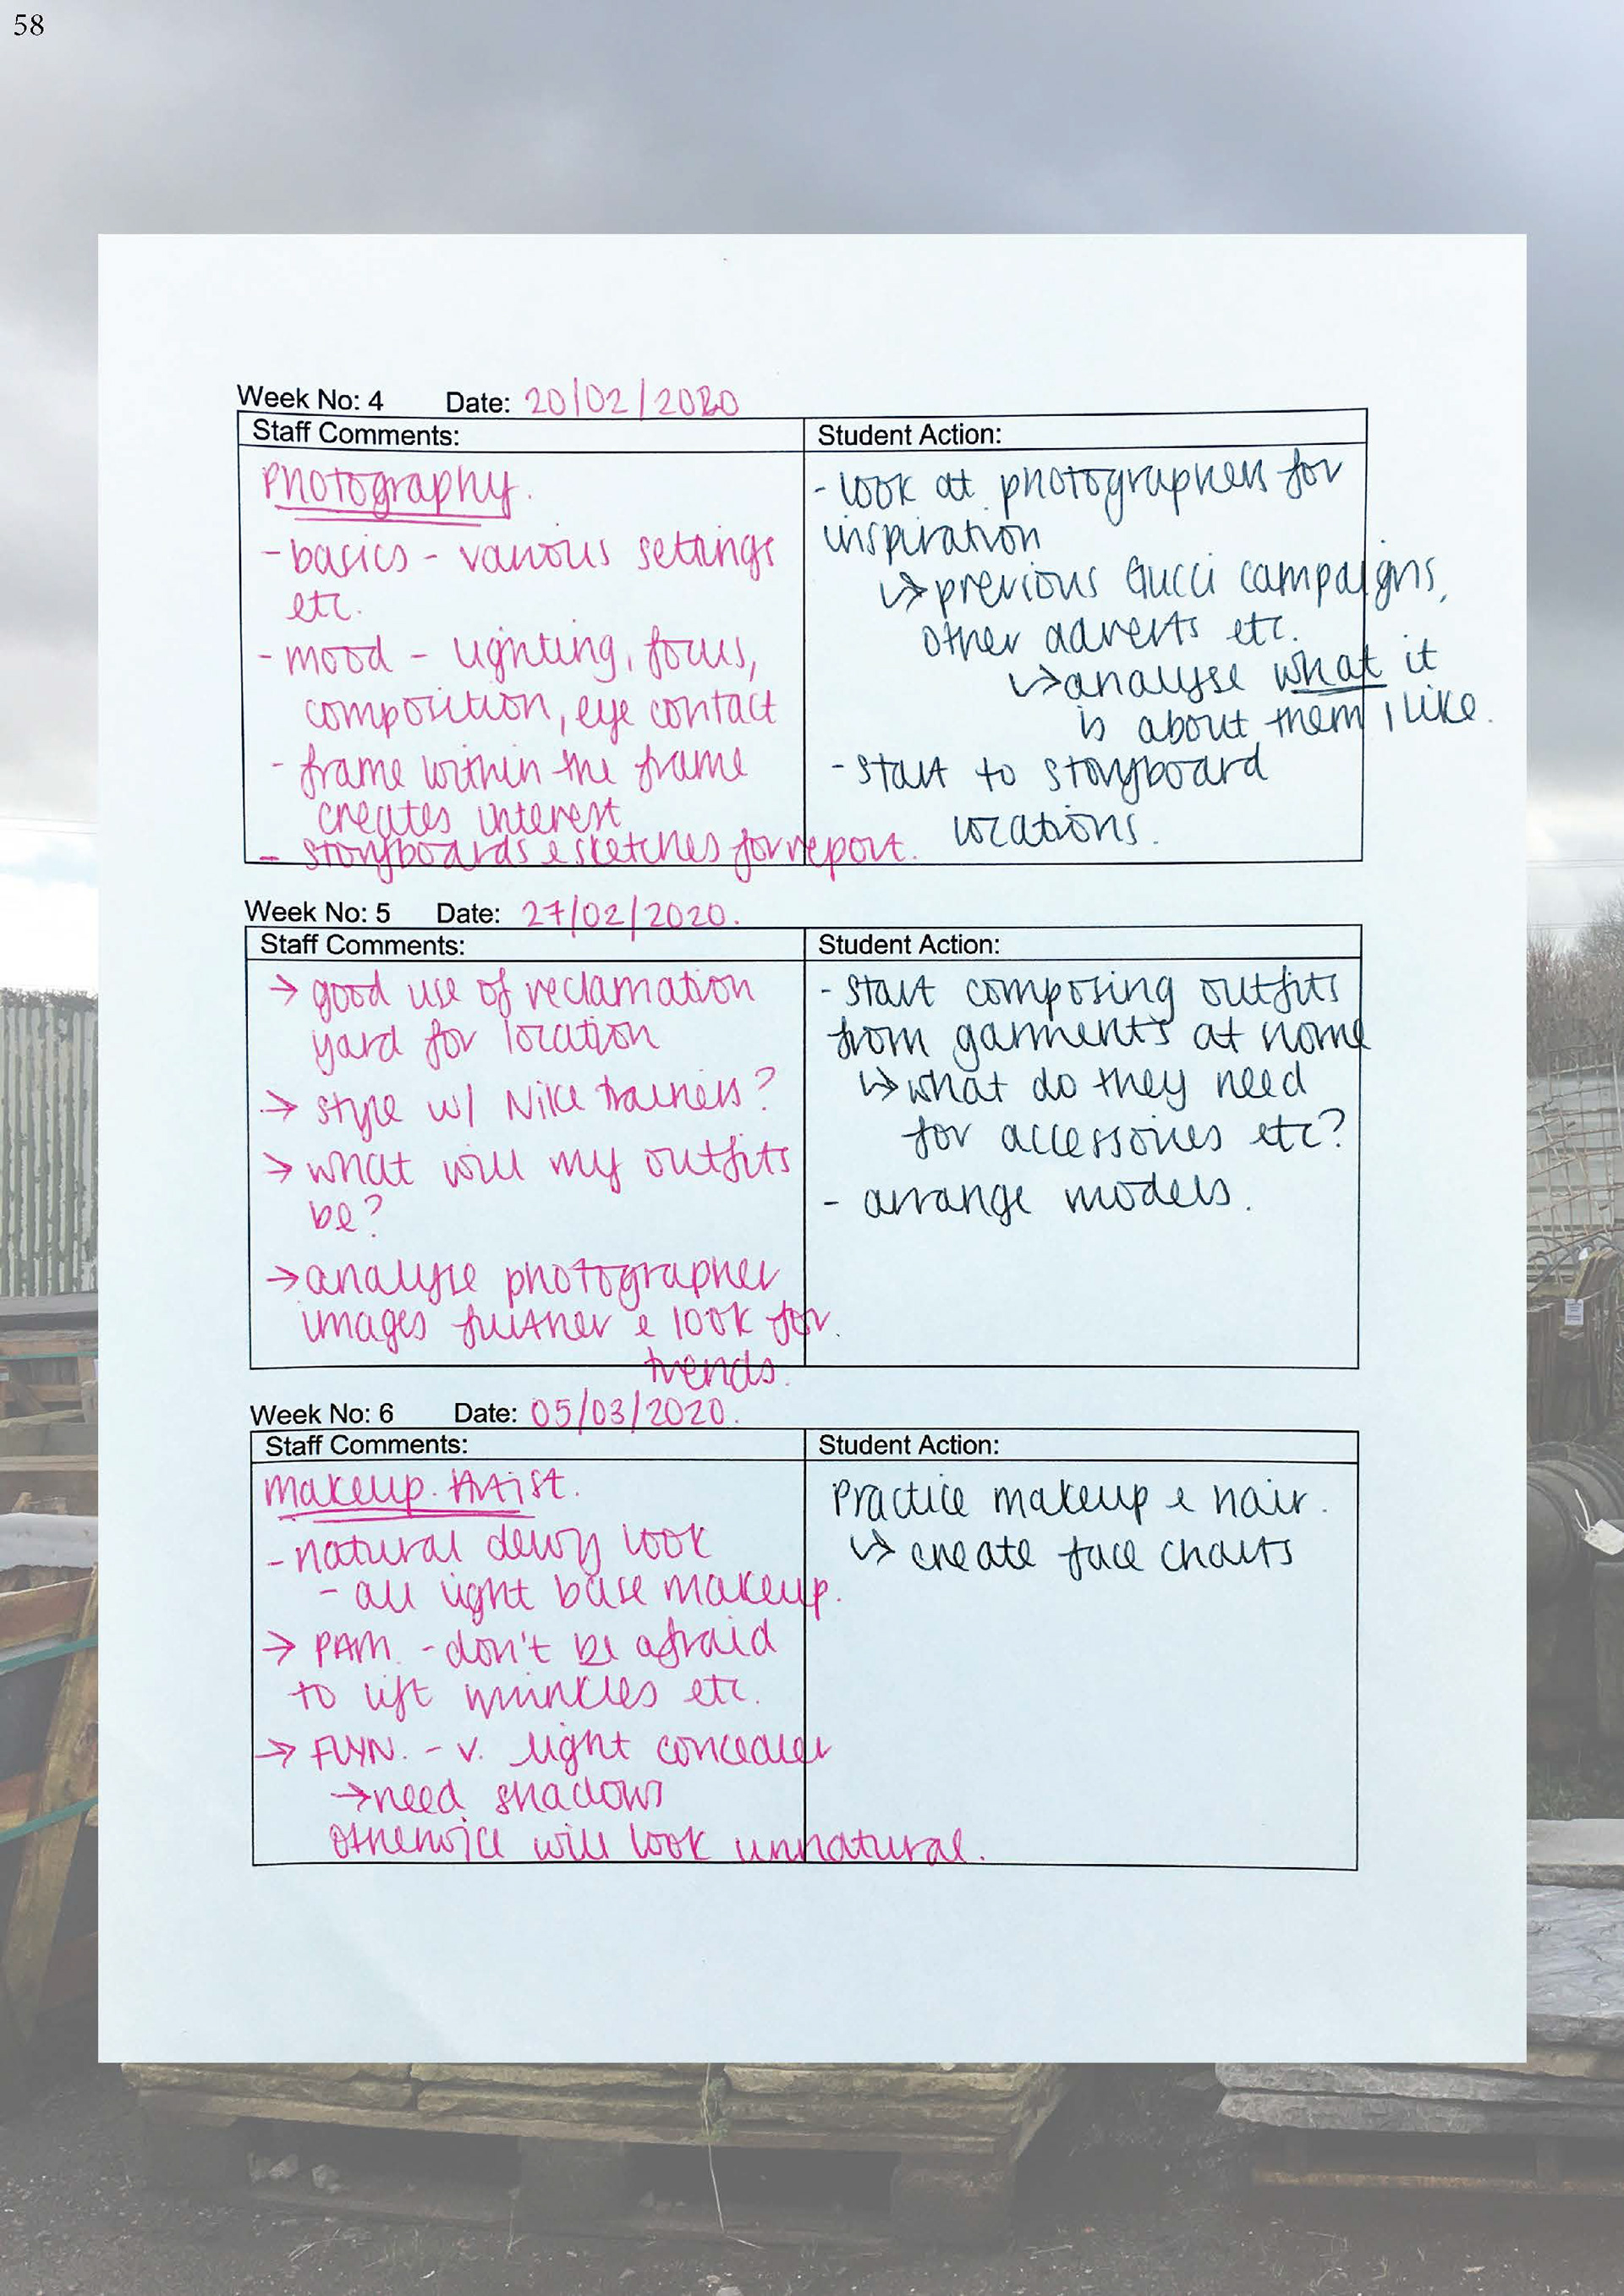 58
Week No: 4 Date: 20/02/2020
Staff Comments:
Photography.
- basics - various settings
etc.
- mood - lighting, focus,
composition, eye contact
- frame within the frame
creates interest
- storyboards & sketches for report.
Student Action:
- look at photographers for
inspiration
↳ previous Gucci campaigns,
other adverts etc.
↳ analyse what it
is about them I like.
- start to storyboard
locations.
Week No: 5 Date: 27/02/2020.
Staff Comments:
→ good use of reclamation
yard for location
→ style w/ Nike trainers?
→ what will my outfits
be?
→ analyse photographer
images further & look for
trends.
Student Action:
- start composing outfits
from garments at home
↳ what do they need
for accessories etc?
- arrange models.
Week No: 6 Date: 05/03/2020.
Staff Comments:
Makeup Artist.
- natural dewy look
- all light base makeup.
→ PAM. - don't be afraid
to lift wrinkles etc.
→ FLYN. - v. light concealer
→ need shadows
otherwise will look unnatural.
Student Action:
Practice makeup & hair.
↳ create face charts